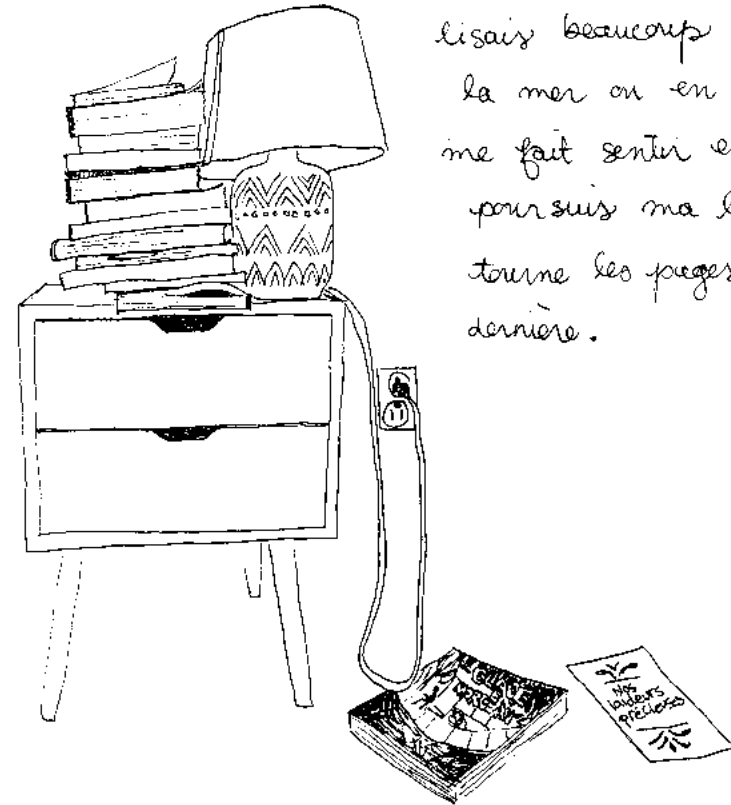 lisais beaucoup
la mer ou en
me fait sentir e
poursuis ma l
tourne les pages
dernière.
Nos
laideurs
précieuses